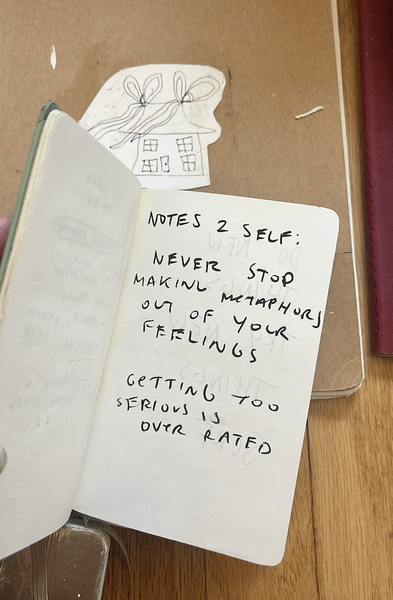 NOTES 2 SELF:
NEVER STOP
MAKING METAPHORS
OUT OF YOUR
FEELINGS
GETTING TOO
SERIOUS IS
OVER RATED